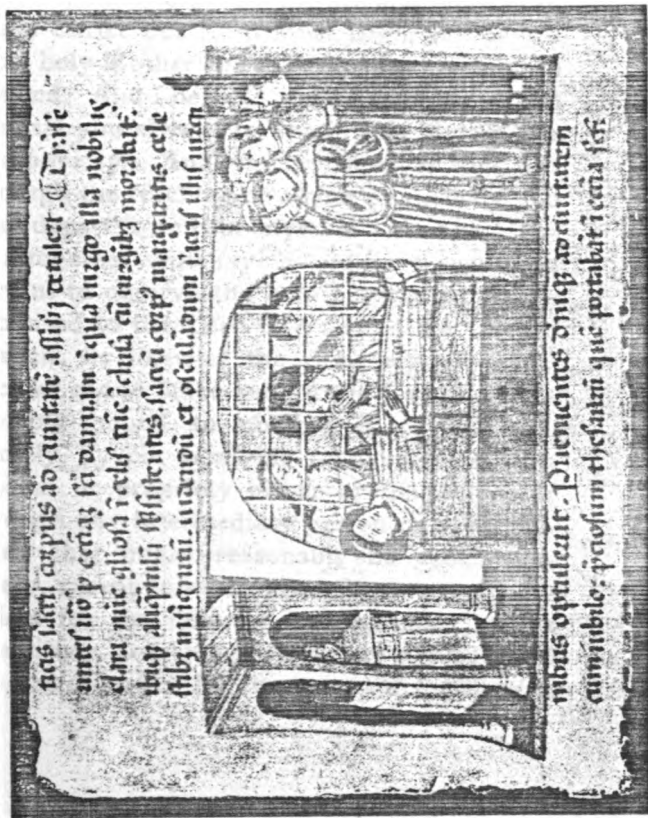 ticis sacri corpus ad ciuitatē assisij detulert. ⁋ Trāse
untes ūo p ecciaz sci damiani ī qua uirgo illa nobilis
clara nūc gl'iosa ī celis tūc īclusa cū uirgībz morabat᷑.
ibiqz aliqntulū subsistentes, sacrū corp margaritis cele
stibz insignitū uidendū et osculadum sacris illis uirgi
nibus optulerūt. Puenientes deniqz ad ciuitatem
cum iubilo; pciosum thesaurū quē portabāt ī eccia sci